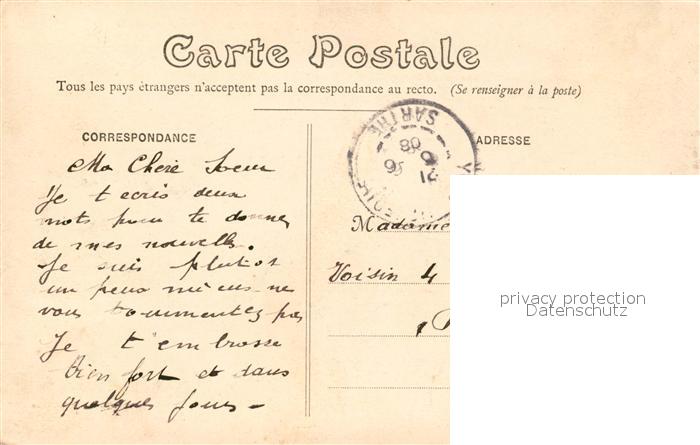 Carte Postale
Tous les pays étrangers n'acceptent pas la correspondance au recto. (Se renseigner à la poste)
CORRESPONDANCE
ADRESSE
SARTHE
Ma Chere Soeur
Je t ecris deux
mots pour te donner
de mes nouvelles.
Je suis plutot
un peux mieux ne
vous tourmentez pas
Je t'embrasse
bien fort et dans
quelques jours -
Madame
Voisin 4
privacy protection
Datenschutz